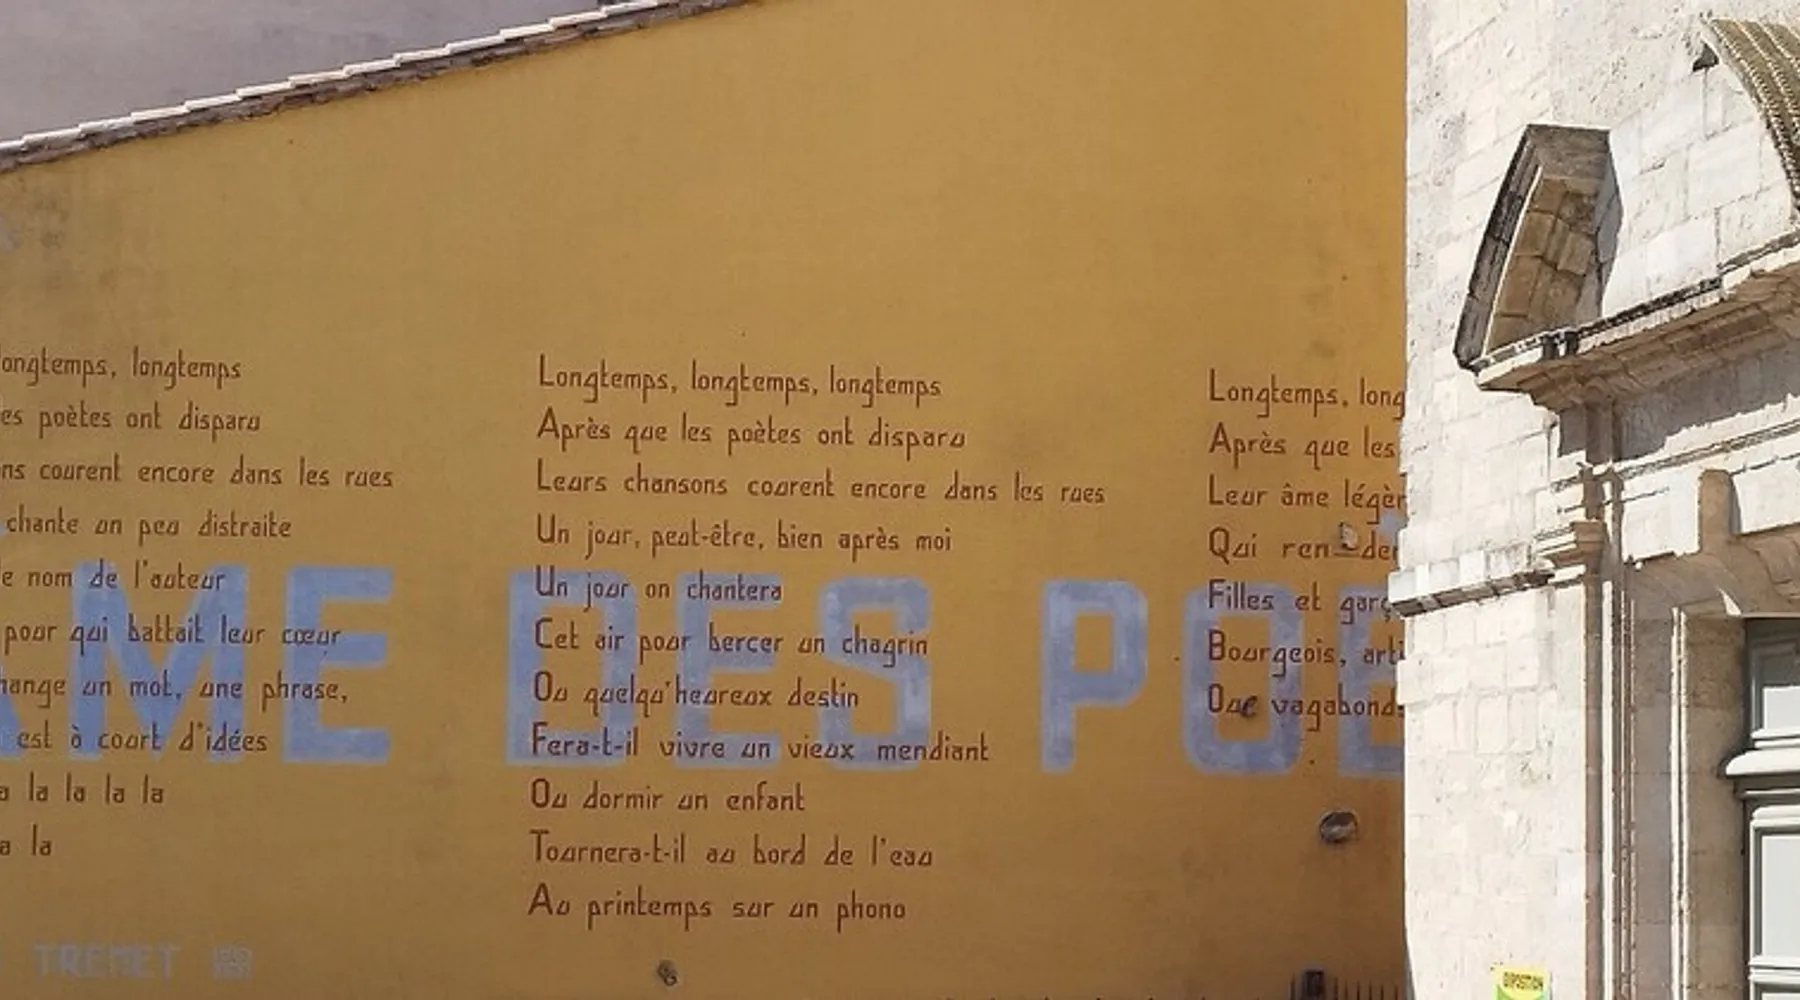 ongtemps, longtemps
es poètes ont disparu
ns courent encore dans les rues
chante un peu distraite
e nom de l'auteur
pour qui battait leur cœur
hange un mot, une phrase,
est à court d'idées
a la la la la
a la
Longtemps, longtemps, longtemps
Après que les poètes ont disparu
Leurs chansons courent encore dans les rues
Un jour, peut-être, bien après moi
Un jour on chantera
Cet air pour bercer un chagrin
Ou quelqu'heureux destin
Fera-t-il vivre un vieux mendiant
Ou dormir un enfant
Tournera-t-il au bord de l'eau
Au printemps sur un phono
Longtemps, long
Après que les
Leur âme légèr
Qui ren der
Filles et garç
Bourgeois, arti
Que vagabonds
ÂME DES POÈ
TREMET
EXPOSITION